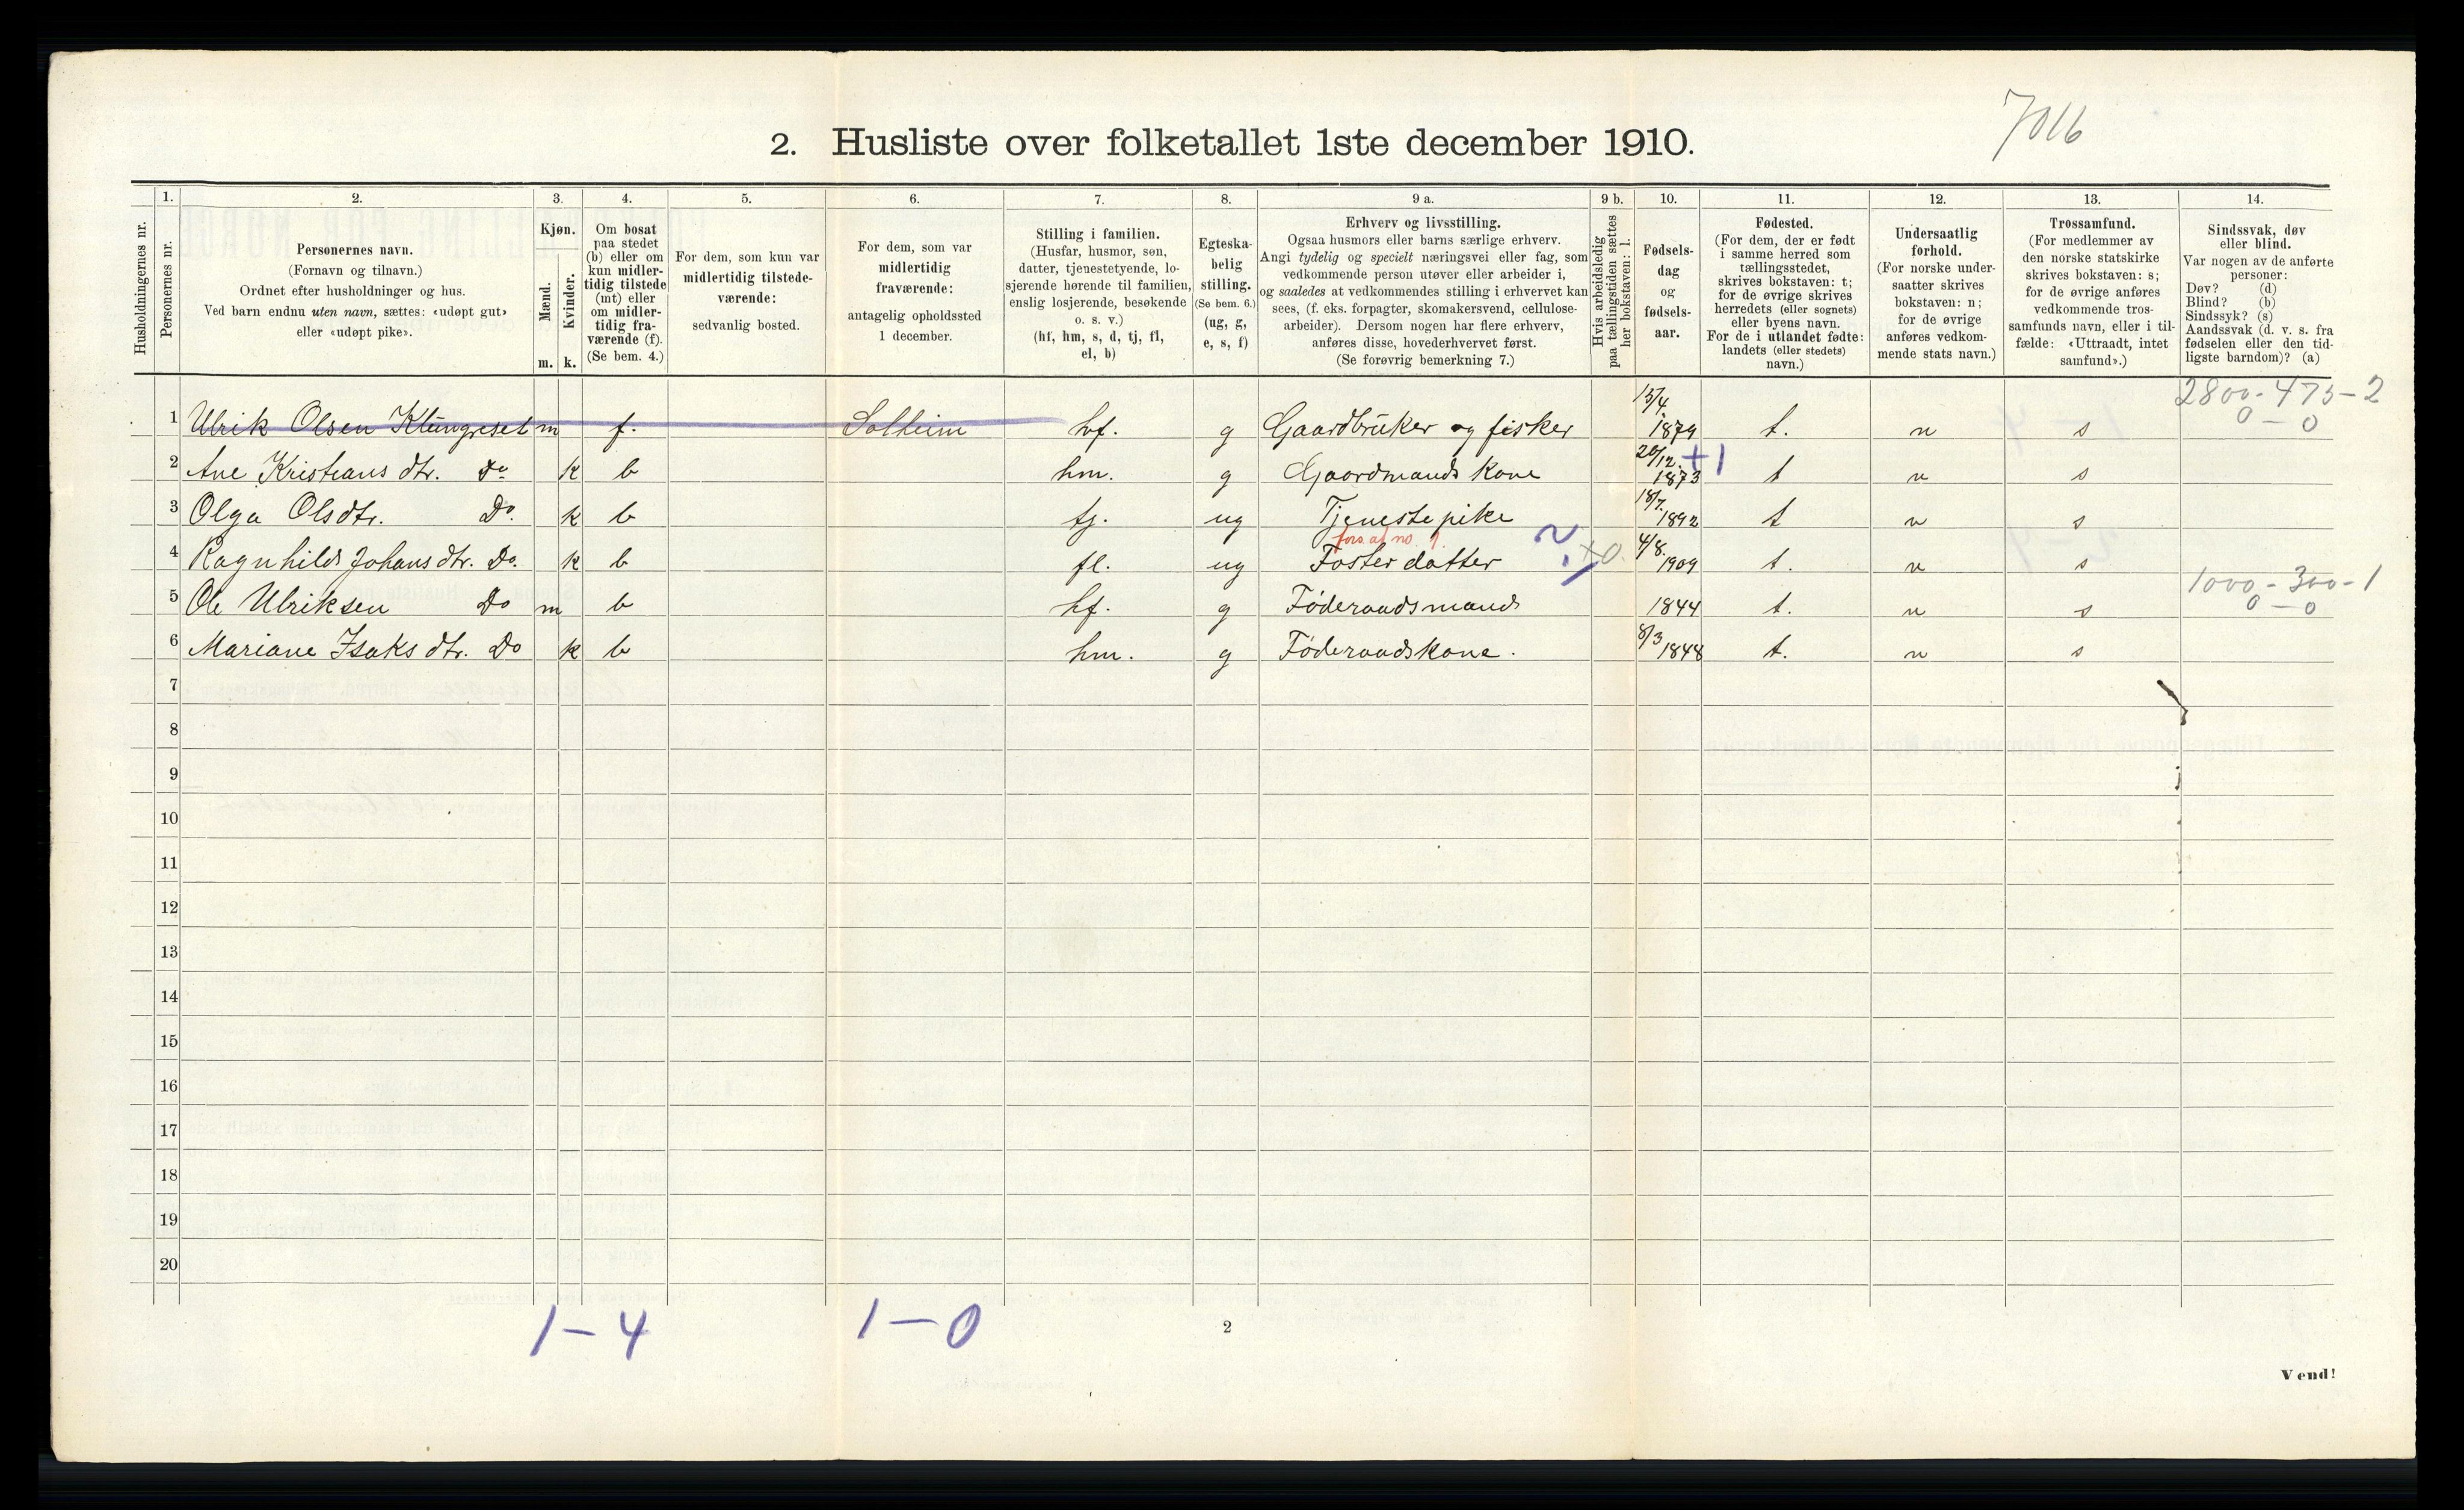 7016
2. Husliste over folketallet 1ste december 1910.
Husholdningernes nr.
1.
Personernes nr.
2.
Personernes navn.
(Fornavn og tilnavn.)
Ordnet efter husholdninger og hus.
Ved barn endnu uten navn, sættes: «udøpt gut»
eller «udøpt pike».
3.
Kjøn.
Mænd.
m.
Kvinder.
k.
4.
Om bosat
paa stedet
(b) eller om
kun midler-
tidig tilstede
(mt) eller
om midler-
tidig fra-
værende (f).
(Se bem. 4.)
5.
For dem, som kun var
midlertidig tilstede-
værende:
sedvanlig bosted.
6.
For dem, som var
midlertidig
fraværende:
antagelig opholdssted
1 december.
7.
Stilling i familien.
(Husfar, husmor, søn,
datter, tjenestetyende, lo-
sjerende hørende til familien,
enslig losjerende, besøkende
o. s. v.)
(hf, hm, s, d, tj, fl,
el, b)
8.
Egteska-
belig
stilling.
(Se bem. 6.)
(ug, g,
e, s, f)
9 a.
Erhverv og livsstilling.
Ogsaa husmors eller barns særlige erhverv.
Angi tydelig og specielt næringsvei eller fag, som
vedkommende person utøver eller arbeider i,
og saaledes at vedkommendes stilling i erhvervet kan
sees, (f. eks. forpagter, skomakersvend, cellulose-
arbeider). Dersom nogen har flere erhverv,
anføres disse, hovederhvervet først.
(Se forøvrig bemerkning 7.)
9 b.
Hvis arbeidsledig
paa tællingstiden sættes
her bokstaven: l.
10.
Fødsels-
dag
og
fødsels-
aar.
11.
Fødested.
(For dem, der er født
i samme herred som
tællingsstedet,
skrives bokstaven: t;
for de øvrige skrives
herredets (eller sognets)
eller byens navn.
For de i utlandet fødte:
landets (eller stedets)
navn.)
12.
Undersaatlig
forhold.
(For norske under-
saatter skrives
bokstaven: n;
for de øvrige
anføres vedkom-
mende stats navn.)
13.
Trossamfund.
(For medlemmer av
den norske statskirke
skrives bokstaven: s;
for de øvrige anføres
vedkommende tros-
samfunds navn, eller i til-
fælde: «Uttraadt, intet
samfund».)
14.
Sindssvak, døv
eller blind.
Var nogen av de anførte
personer:
Døv? (d)
Blind? (b)
Sindssyk? (s)
Aandssvak (d. v. s. fra
fødselen eller den tid-
ligste barndom)? (a)
2800-475-2
0-0
1 Ulrik Olsen Klungreset m f. Solheim hf. g Gaardbruker og fisker 13/4. 1879 t. n s
2 Ane Kristians dtr. Do k b hm. g Gaardmands kone 20/12. 1873 +1 t n s
3 Olga Olsdtr. Do. k b tj. ug Tjenestepike 18/7. 1892 t n s
fors. af no. 1.
4 Ragnhild Johans dtr. Do. k b fl. ug Foster datter +0. 4/8. 1909 t. n s
1000-300-1
0-0
5 Ole Ulriksen Do m b hf. g Føderaadsmand 1844 t. n s
6 Mariane Isaks dtr. Do k b hm. g Føderaadskone. 8/3 1848 t. n s
7
8
9
10
11
12
13
14
15
16
17
18
19
20
1-4 1-0
2
Vend!